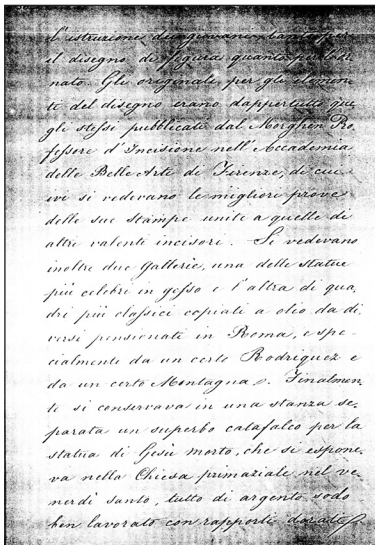 l'istruzione de' giovani tanto per
il disegno di figura, quanto per l'or-
nato. Gli originali per gli elemen-
ti del disegno erano dappertutto que-
gli stessi pubblicati dal Morghen Pro-
fessore d'Incisione nell'Accademia
delle Belle Arti di Firenze, di cui
ivi si vedevano le migliori prove
delle sue stampe unite a quelle di
altri valenti incisori. Si vedevano
inoltre due Gallerie, una delle statue
più celebri in gesso e l'altra di qua-
dri più classici copiati a olio da di-
versi pensionati in Roma, e spe-
cialmente da un certo Rodriguez e
da un certo Montagna. Finalmen-
te si conservava in una stanza se-
parata un superbo catafalco per la
statua di Gesù morto, che si espone-
va nella Chiesa primaziale nel ve-
nerdì santo, tutto di argento sodo
ben lavorato con rapporti dorati